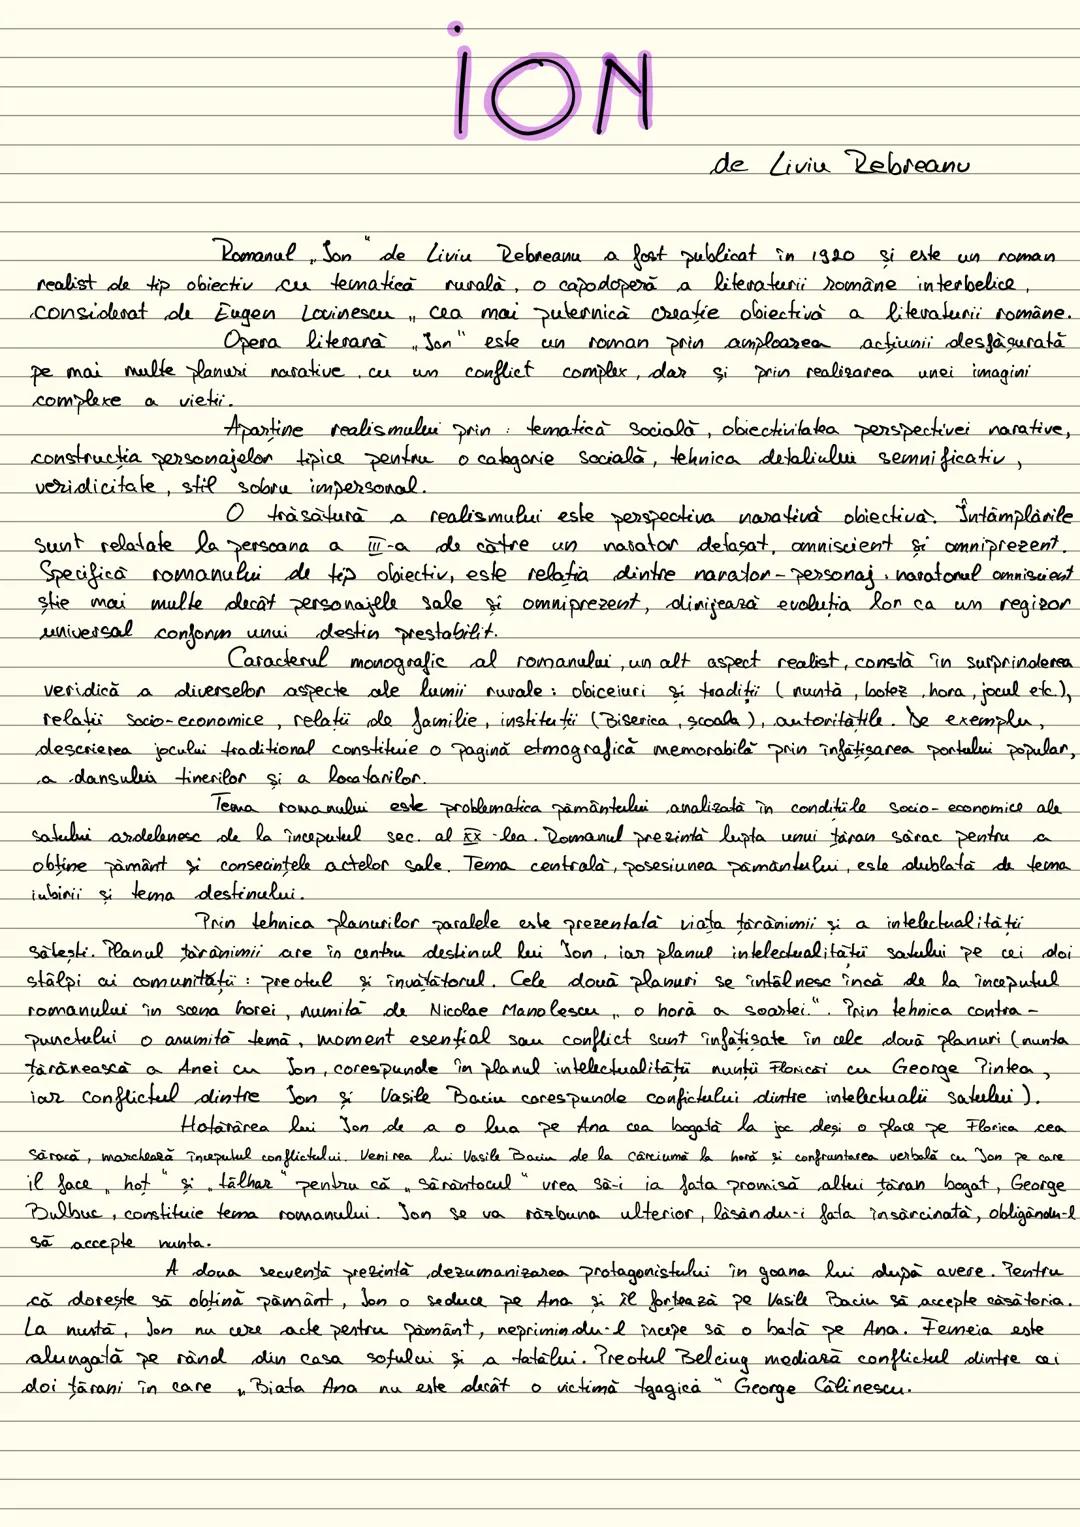 iON
de Liviu Rebreanu
Romanul „Ion" de Liviu Rebreanu a fost publicat în 1920 și este un roman
realist de tip obiectiv cu tematică rurală, o capodoperă a literaturii române interbelice,
considerat de Eugen Lovinescu „cea mai puternică creație obiectivă a literaturii române.
Opera literară „Ion" este un roman prin amploarea acțiunii desfășurată
pe mai multe planuri narative, cu un conflict complex, dar și prin realizarea unei imagini
complexe a vieții.
Aparține realismului prin: tematică socială, obiectivitatea perspectivei narative,
construcția personajelor tipice pentru o categorie socială, tehnica detaliului semnificativ,
veridicitate, stil sobru impersonal.
O trăsătură a realismului este perspectiva narativă obiectivă. Întâmplările
sunt relatate la persoana a III-a de către un narator detașat, omniscient și omniprezent.
Specifică romanului de tip obiectiv, este relația dintre narator-personaj. naratorul omniscient
știe mai multe decât personajele sale și omniprezent, dirijează evoluția lor ca un regizor
universal conform unui destin prestabilit.
Caracterul monografic al romanului, un alt aspect realist, constă în surprinderea
veridică a diverselor aspecte ale lumii rurale: obiceiuri și tradiții (nuntă, botez, hora, jocul etc.),
relații socio-economice, relații de familie, instituții (Biserica, școala), autoritățile. De exemplu,
descrierea jocului tradițional constituie o pagină etmografică memorabilă prin înfățișarea portului popular,
a dansului tinerilor și a locatarilor.
Tema romanului este problematica pământului analizată în condițiile socio-economice ale
satului ardelenesc de la începutul sec. al XX-lea. Romanul prezintă lupta unui țăran sărac pentru a
obține pământ și consecințele actelor sale. Tema centrală, posesiunea pământului, este dublată de tema
iubirii și tema destinului.
Prin tehnica planurilor paralele este prezentată viața țărănimii și a intelectualității
sătești. Planul țărănimii are în centru destinul lui Ion, iar planul intelectualității satului pe cei doi
stâlpi ai comunității: preotul și învățătorul. Cele două planuri se întâlnesc încă de la începutul
romanului în scena horei, numită de Nicolae Manolescu „o horă a soartei.". Prin tehnica contra-
punctului o anumită temă, moment esențial sau conflict sunt înfățișate în cele două planuri (nunta
țărănească a Anei cu Ion, corespunde în planul intelectualității nunții Floricăi cu George Pintea,
iar conflictul dintre Ion și Vasile Baciu corespunde confictului dintre intelectualii satului).
Hotărârea lui Ion de a o lua pe Ana cea bogată la joc deși o place pe Florica cea
săracă, marchează începutul conflictului. Venirea lui Vasile Baciu de la cârciumă la horă și confruntarea verbală cu Ion pe care
îl face „hoț" și „tâlhar" pentru că „sărântocul" vrea să-i ia fata promisă altui țăran bogat, George
Bulbuc, constituie tema romanului. Ion se va răzbuna ulterior, lăsându-i fata însărcinată, obligându-l
să accepte nunta.
A doua secvență prezintă dezumanizarea protagonistului în goana lui după avere. Pentru
că dorește să obțină pământ, Ion o seduce pe Ana și îl forțează pe Vasile Baciu să accepte căsătoria.
La nuntă, Ion nu cere acte pentru pământ, neprimindu-l începe să o bată pe Ana. Femeia este
alungată pe rând din casa soțului și a tatălui. Preotul Belciug mediază conflictul dintre cei
doi țărani în care „Biata Ana nu este decât o victimă tgagică" George Călinescu.